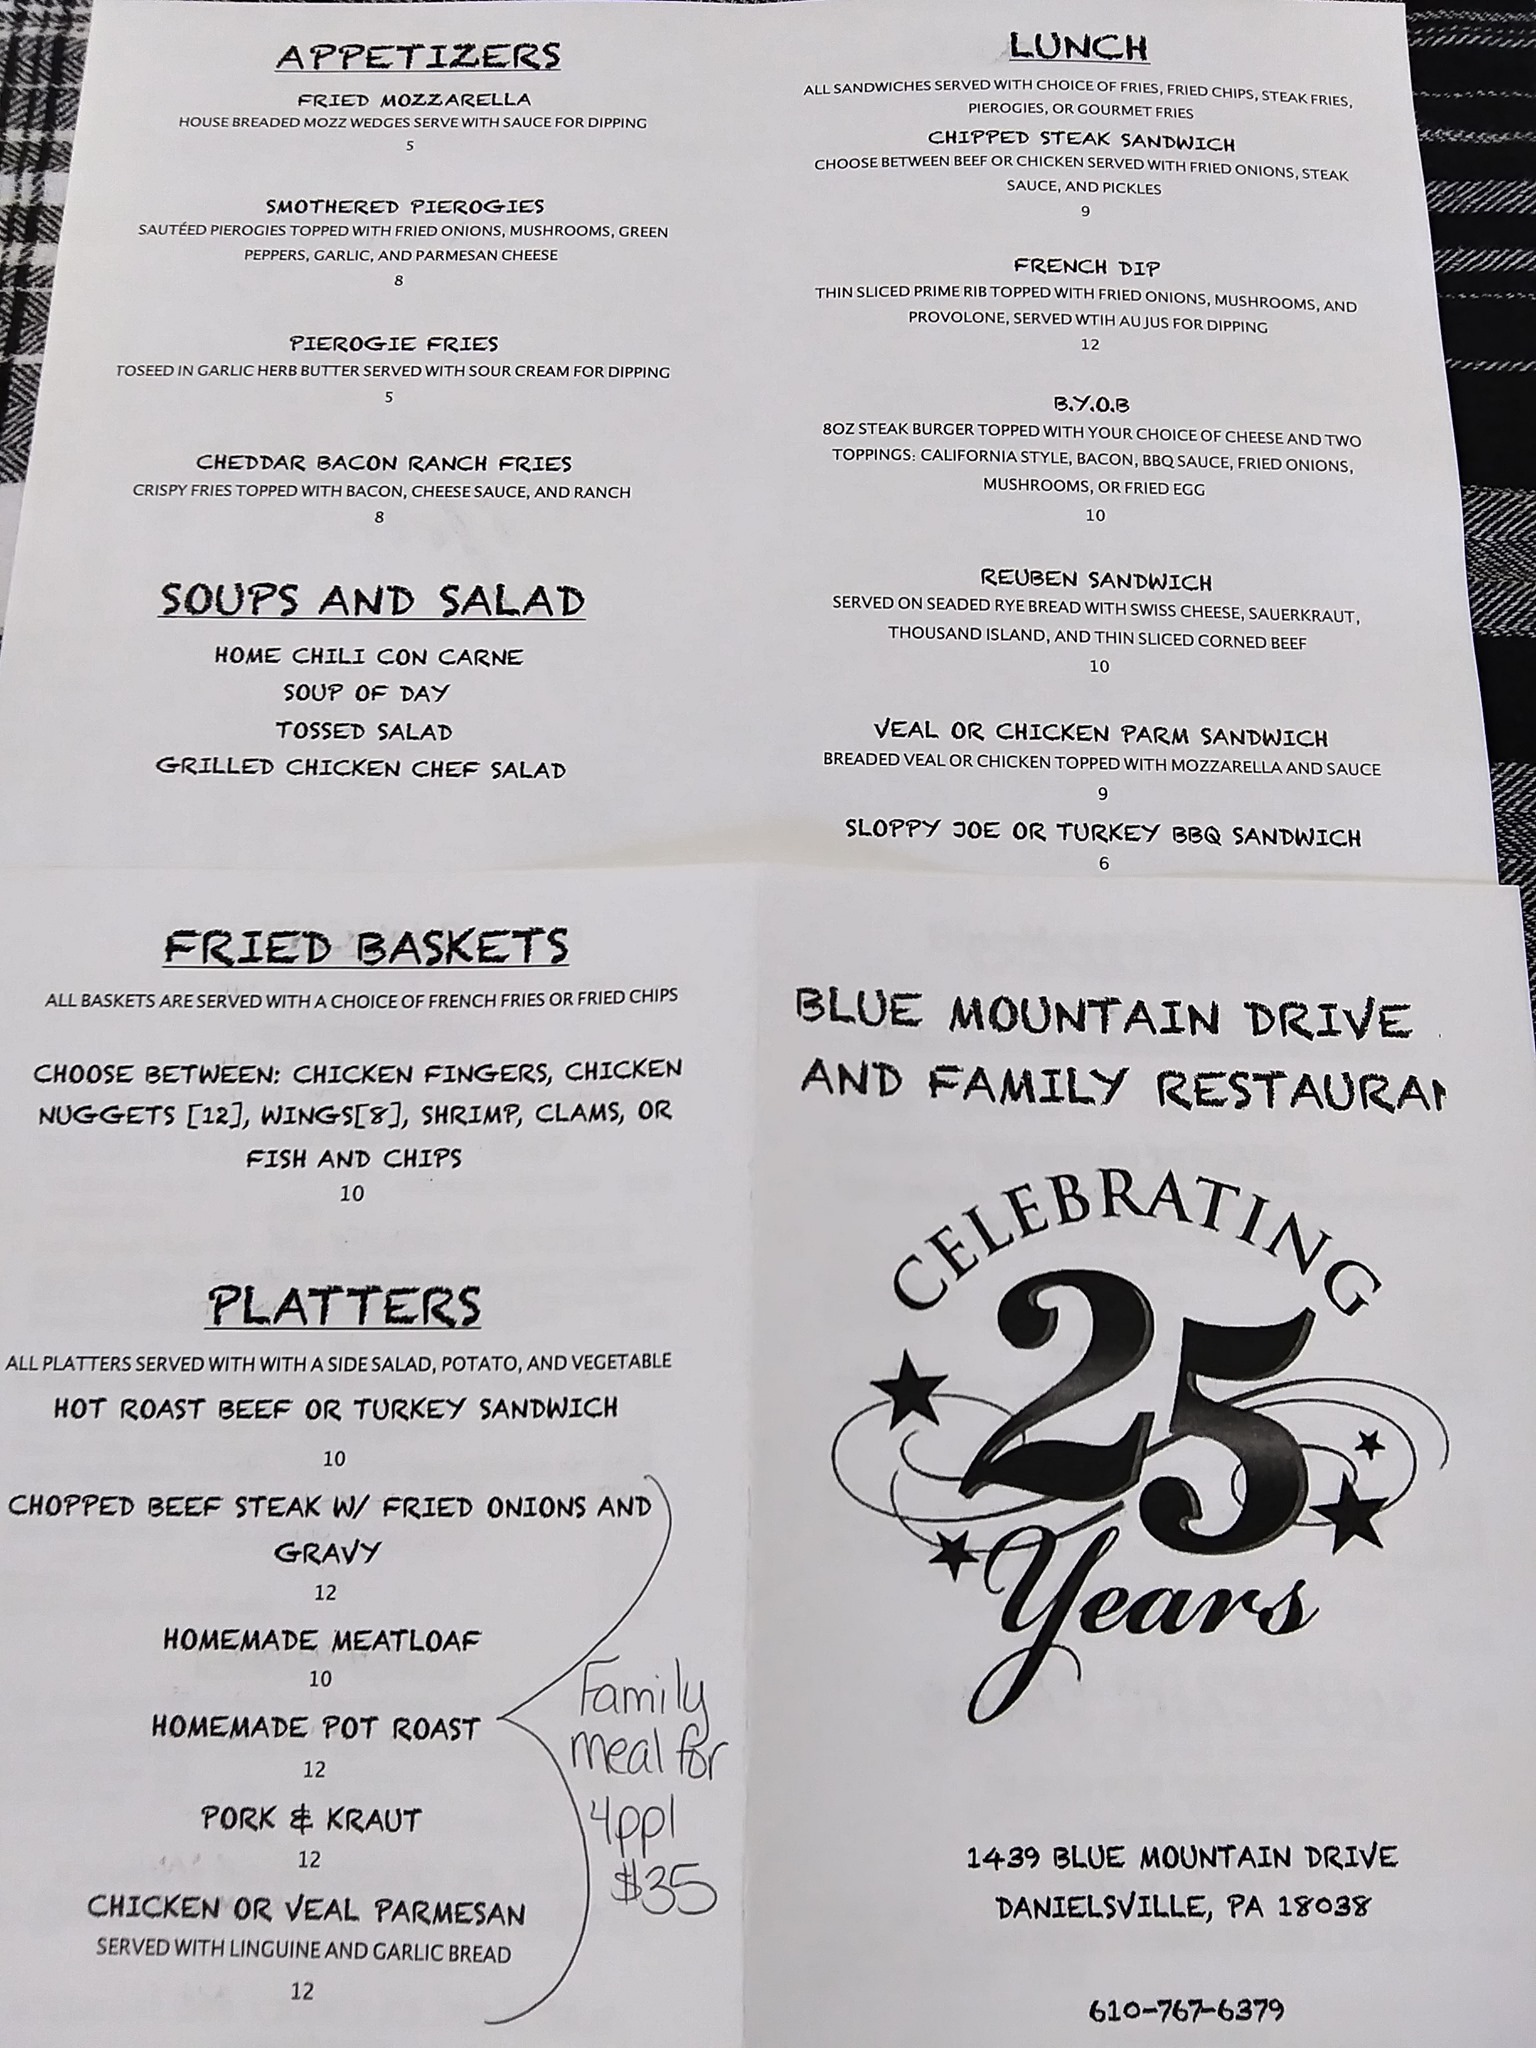 APPETIZERS
FRIED MOZZARELLA
HOUSE BREADED MOZZ WEDGES SERVE WITH SAUCE FOR DIPPING
5
SMOTHERED PIEROGIES
SAUTÉED PIEROGIES TOPPED WITH FRIED ONIONS, MUSHROOMS, GREEN
PEPPERS, GARLIC, AND PARMESAN CHEESE
8
PIEROGIE FRIES
TOSEED IN GARLIC HERB BUTTER SERVED WITH SOUR CREAM FOR DIPPING
5
CHEDDAR BACON RANCH FRIES
CRISPY FRIES TOPPED WITH BACON, CHEESE SAUCE, AND RANCH
8
SOUPS AND SALAD
HOME CHILI CON CARNE
SOUP OF DAY
TOSSED SALAD
GRILLED CHICKEN CHEF SALAD
LUNCH
ALL SANDWICHES SERVED WITH CHOICE OF FRIES, FRIED CHIPS, STEAK FRIES,
PIEROGIES, OR GOURMET FRIES
CHIPPED STEAK SANDWICH
CHOOSE BETWEEN BEEF OR CHICKEN SERVED WITH FRIED ONIONS, STEAK
SAUCE, AND PICKLES
9
FRENCH DIP
THIN SLICED PRIME RIB TOPPED WITH FRIED ONIONS, MUSHROOMS, AND
PROVOLONE, SERVED WTIH AU JUS FOR DIPPING
12
B.Y.O.B
8OZ STEAK BURGER TOPPED WITH YOUR CHOICE OF CHEESE AND TWO
TOPPINGS: CALIFORNIA STYLE, BACON, BBQ SAUCE, FRIED ONIONS,
MUSHROOMS, OR FRIED EGG
10
REUBEN SANDWICH
SERVED ON SEADED RYE BREAD WITH SWISS CHEESE, SAUERKRAUT,
THOUSAND ISLAND, AND THIN SLICED CORNED BEEF
10
VEAL OR CHICKEN PARM SANDWICH
BREADED VEAL OR CHICKEN TOPPED WITH MOZZARELLA AND SAUCE
9
SLOPPY JOE OR TURKEY BBQ SANDWICH
6
FRIED BASKETS
ALL BASKETS ARE SERVED WITH A CHOICE OF FRENCH FRIES OR FRIED CHIPS
CHOOSE BETWEEN: CHICKEN FINGERS, CHICKEN
NUGGETS [12], WINGS[8], SHRIMP, CLAMS, OR
FISH AND CHIPS
10
PLATTERS
ALL PLATTERS SERVED WITH WITH A SIDE SALAD, POTATO, AND VEGETABLE
HOT ROAST BEEF OR TURKEY SANDWICH
10
CHOPPED BEEF STEAK W/ FRIED ONIONS AND
GRAVY
12
HOMEMADE MEATLOAF
10
HOMEMADE POT ROAST
12
PORK & KRAUT
12
CHICKEN OR VEAL PARMESAN
SERVED WITH LINGUINE AND GARLIC BREAD
12
Family
meal for
4ppl
$35
BLUE MOUNTAIN DRIVE
AND FAMILY RESTAURAN
CELEBRATING
25
Years
1439 BLUE MOUNTAIN DRIVE
DANIELSVILLE, PA 18038
610-767-6379